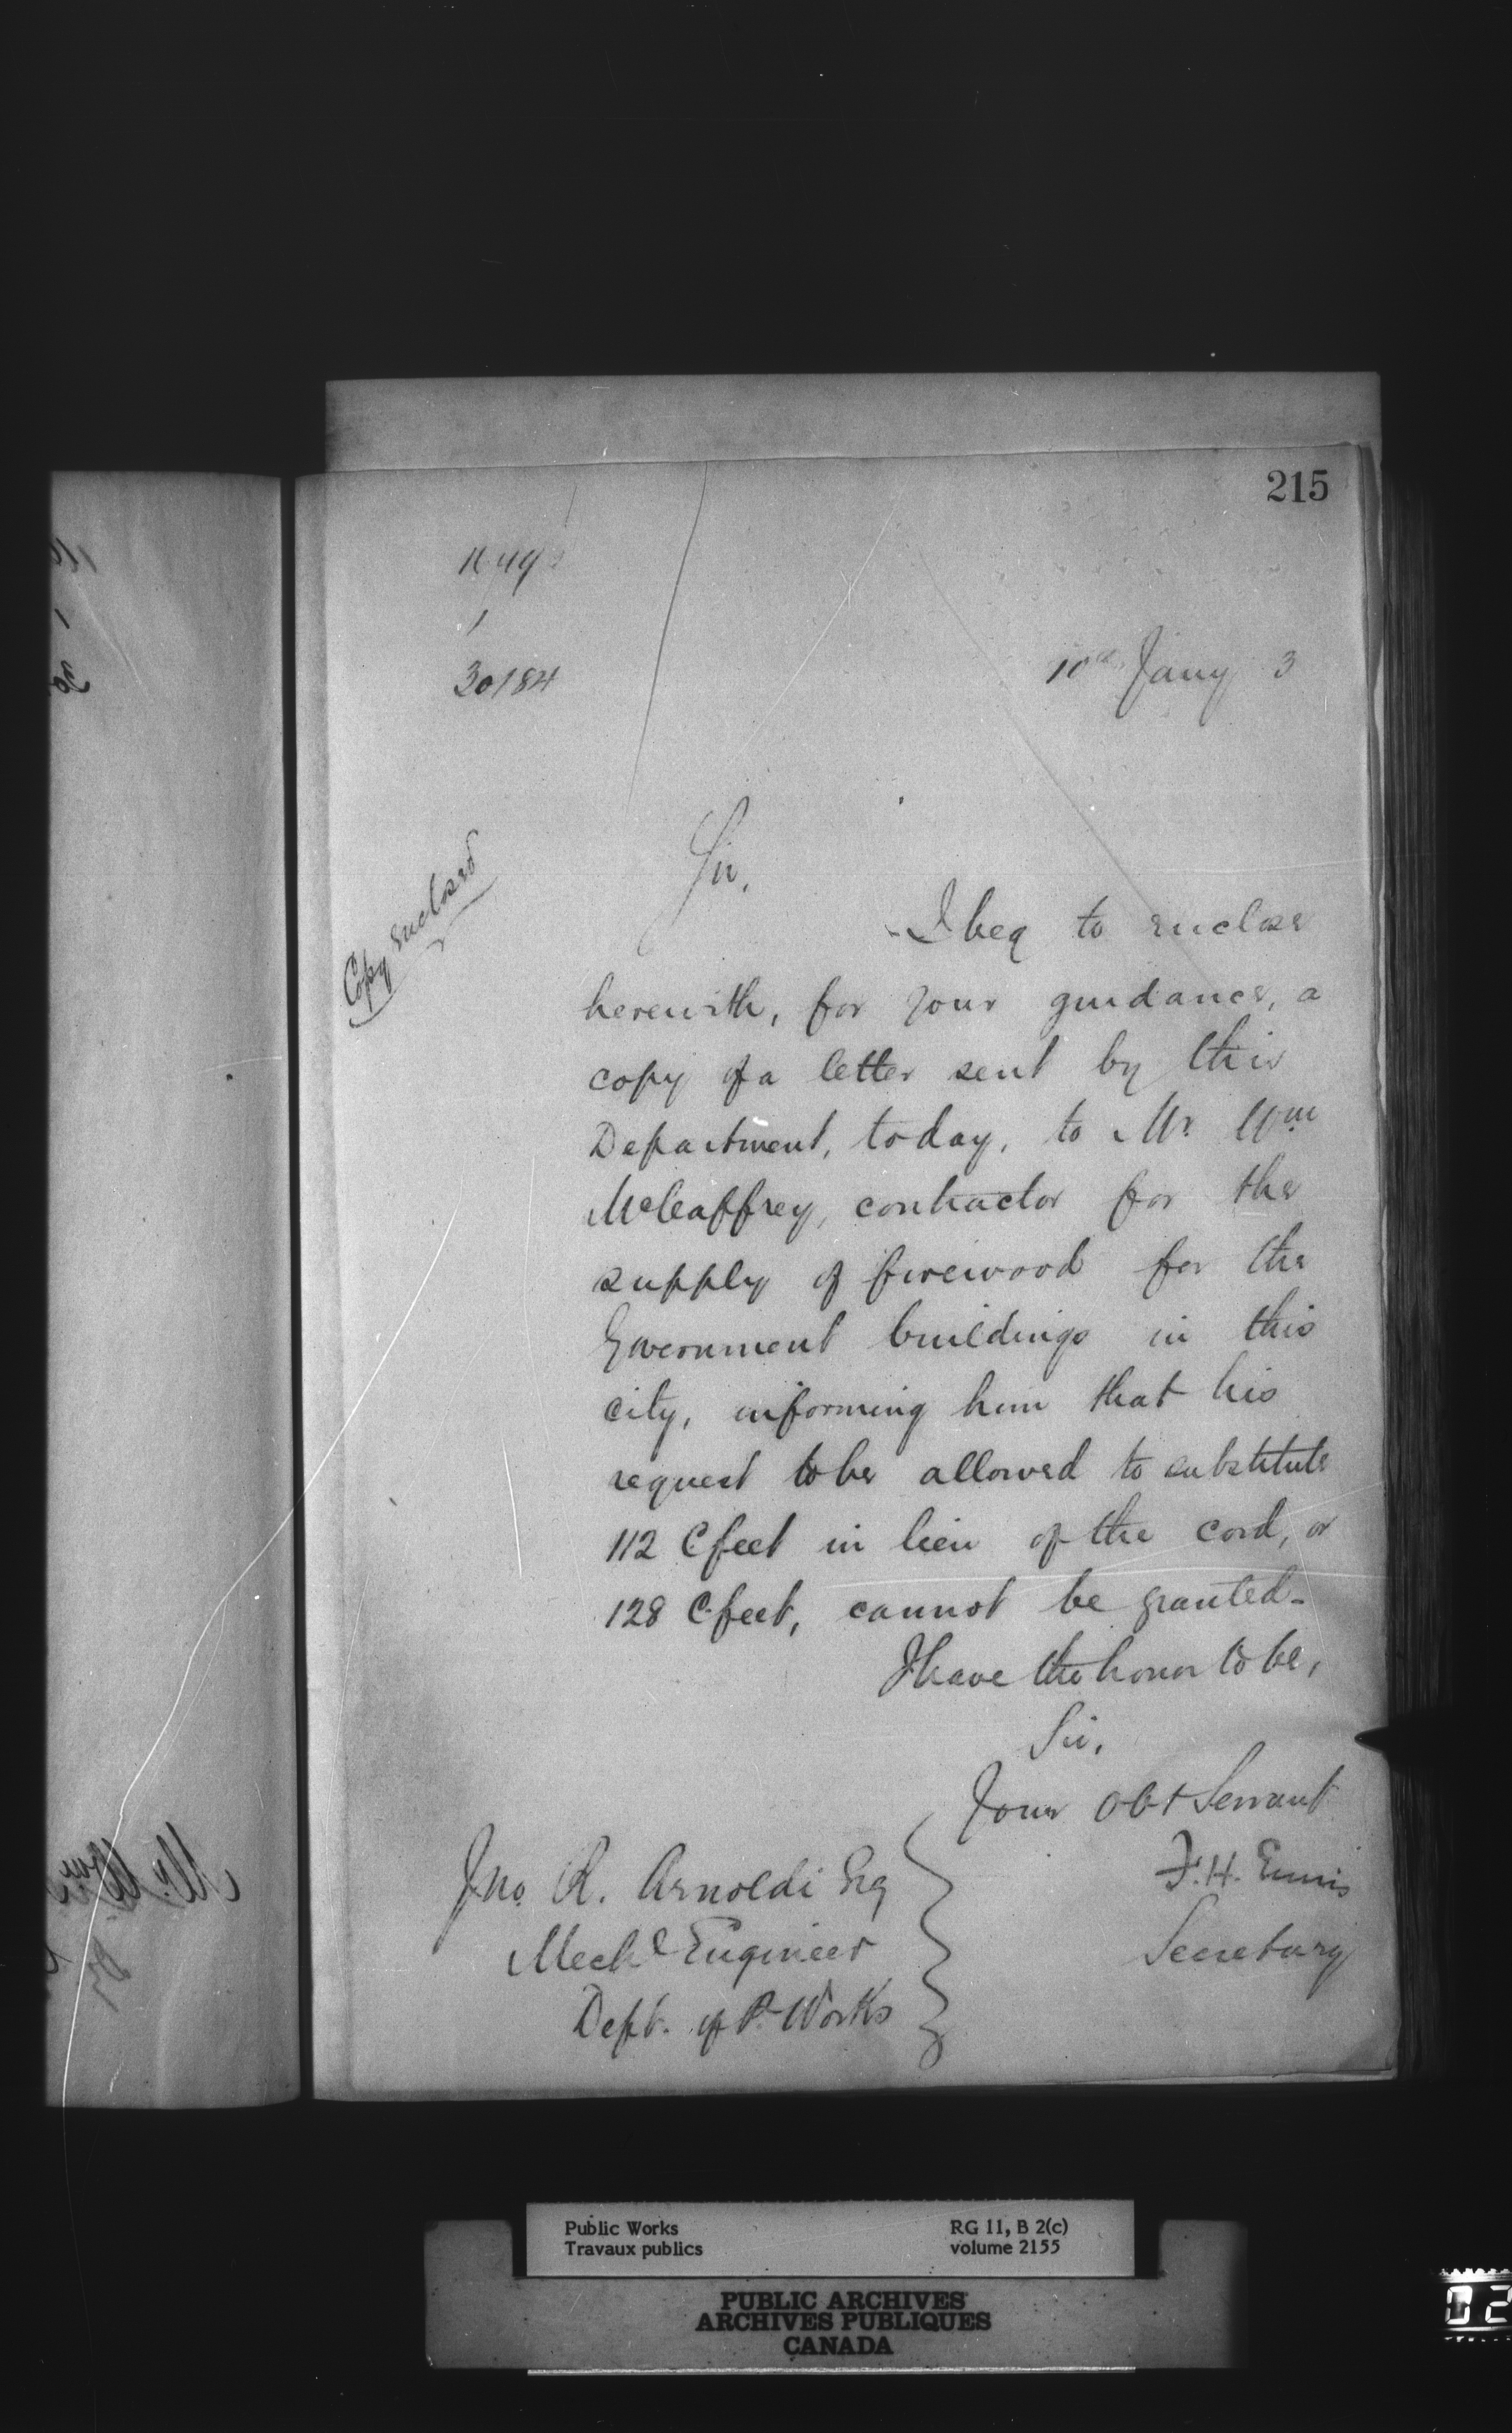 215
30184
10th Jany 3
Copy enclosed
Sir,
I beg to enclose
herewith, for your guidance, a
copy of a letter sent by this
Department, today, to Mr. Wm
McCaffrey, contractor for the
supply of firewood for the
Government buildings in this
city, informing him that his
request to be allowed to substitute
112 C feet in lieu of the cord, or
128 C. feet, cannot be granted_
I have the honor to be,
Sir,
Your Obt Servant
F. H. Ennis
Secretary
Jno. R. Arnoldi Esq
Mechl Engineer
Dept. of P. Works
Public Works
Travaux publics
RG 11, B 2(c)
volume 2155
PUBLIC ARCHIVES
ARCHIVES PUBLIQUES
CANADA
02